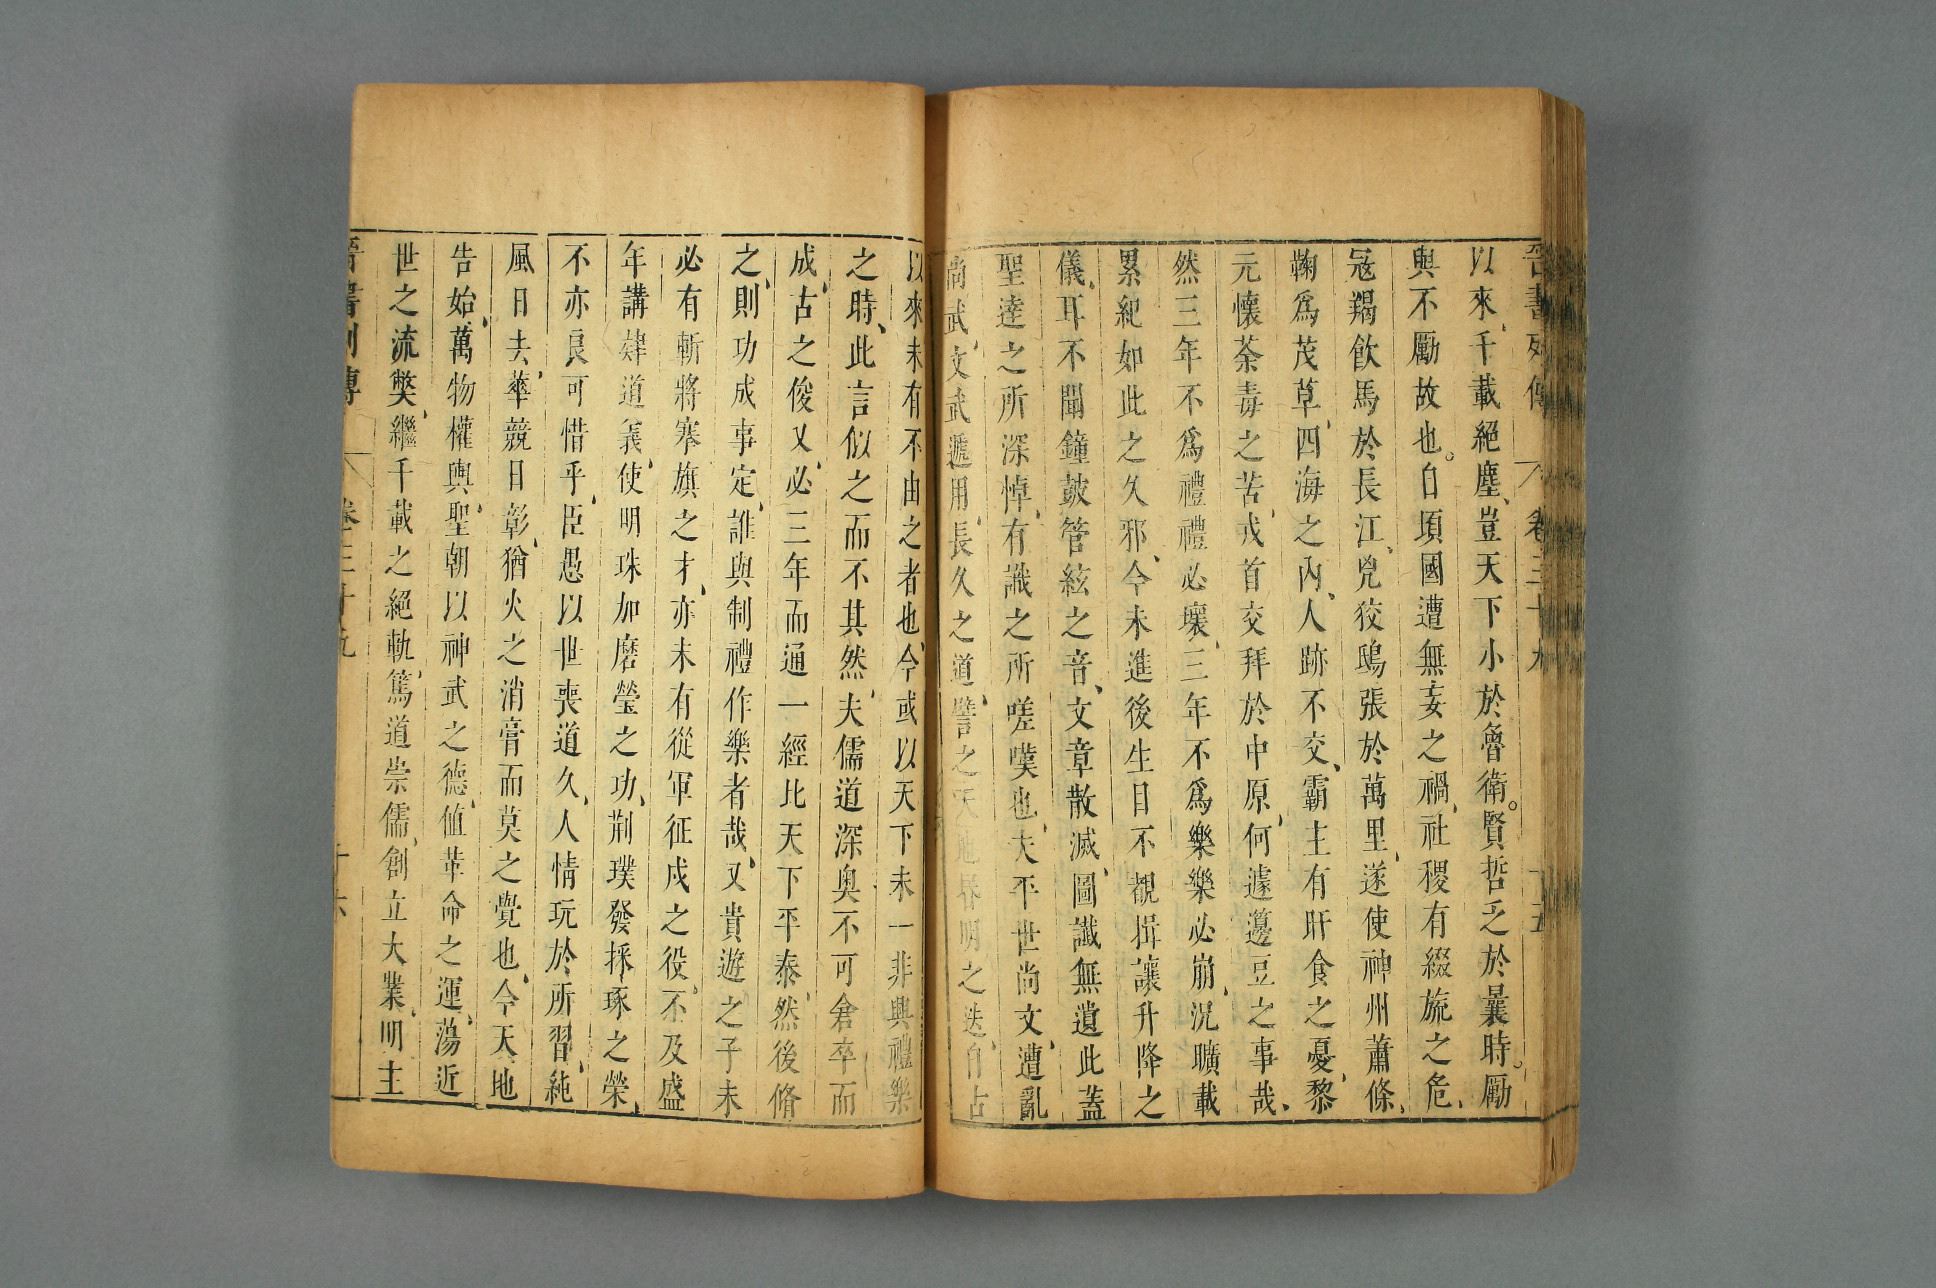 晉書列傳 卷三十九 十五
以來、千載絕塵、豈天下小於魯衛。賢哲乏於曩時。勵
與不勵故也。自頃國遭無妄之禍、社稷有綴旒之危、
寇羯飲馬於長江、兇狡鴟張於萬里、遂使神州蕭條、
鞠爲茂草、四海之內、人跡不交、霸主有旰食之憂、黎
元懷荼毒之苦、戎首交拜於中原、何遽籩豆之事哉、
然三年不爲禮禮必壞、三年不爲樂樂必崩、況曠載
累紀如此之久邪、今末進後生目不覩揖讓升降之
儀、耳不聞鐘鼓管絃之音、文章散滅、圖讖無遺此蓋
聖達之所深悼、有識之所嗟嘆也、夫平世尚文、遭亂
尚武、文武遞用、長久之道、譬之天地昏明之迭、自古
以來未有不由之者也、今或以天下未一非興禮樂
之時、此言似之而不其然、夫儒道深奧不可倉卒而
成、古之俊乂、必三年而通一經比天下平泰、然後脩
之、則功成事定、誰與制禮作樂者哉、又貴遊之子未
必有斬將搴旗之才、亦未有從軍征戍之役、不及盛
年講肄道義、使明珠加磨瑩之功、荆璞發採琢之榮、
不亦良可惜乎、臣愚以世喪道久、人情玩於所習、純
風日去、華競日彰、猶火之消膏而莫之覺也、今天地
告始、萬物權輿、聖朝以神武之德、值革命之運、蕩近
世之流弊、繼千載之絕軌、篤道崇儒、創立大業、明主
晉書列傳 卷三十九 十六